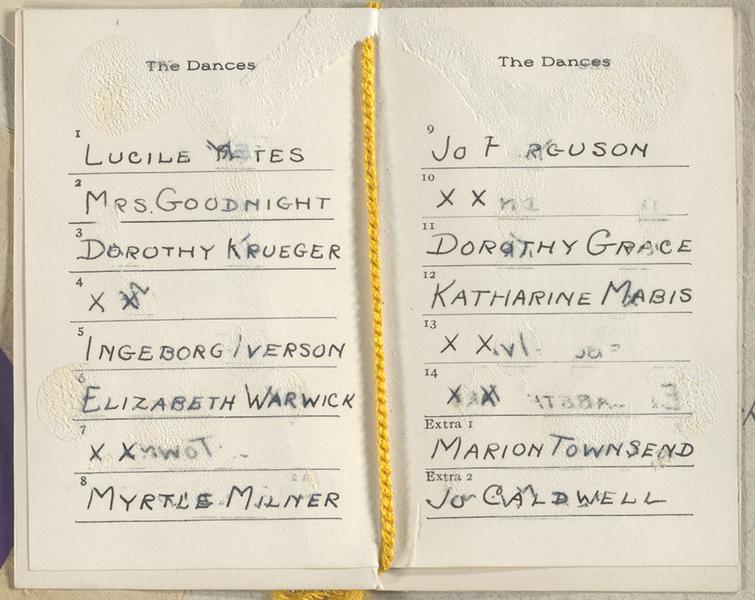 The Dances
1 LUCILE YATES
2 MRS. GOODNIGHT
3 DOROTHY KRUEGER
4 X X
5 INGEBORG IVERSON
6 ELIZABETH WARWICK
7 X X
8 MYRTLE MILNER
The Dances
9 JO FERGUSON
10 X X
11 DOROTHY GRACE
12 KATHARINE MABIS
13 X X
14 X X
Extra 1
MARION TOWNSEND
Extra 2
JO CALDWELL